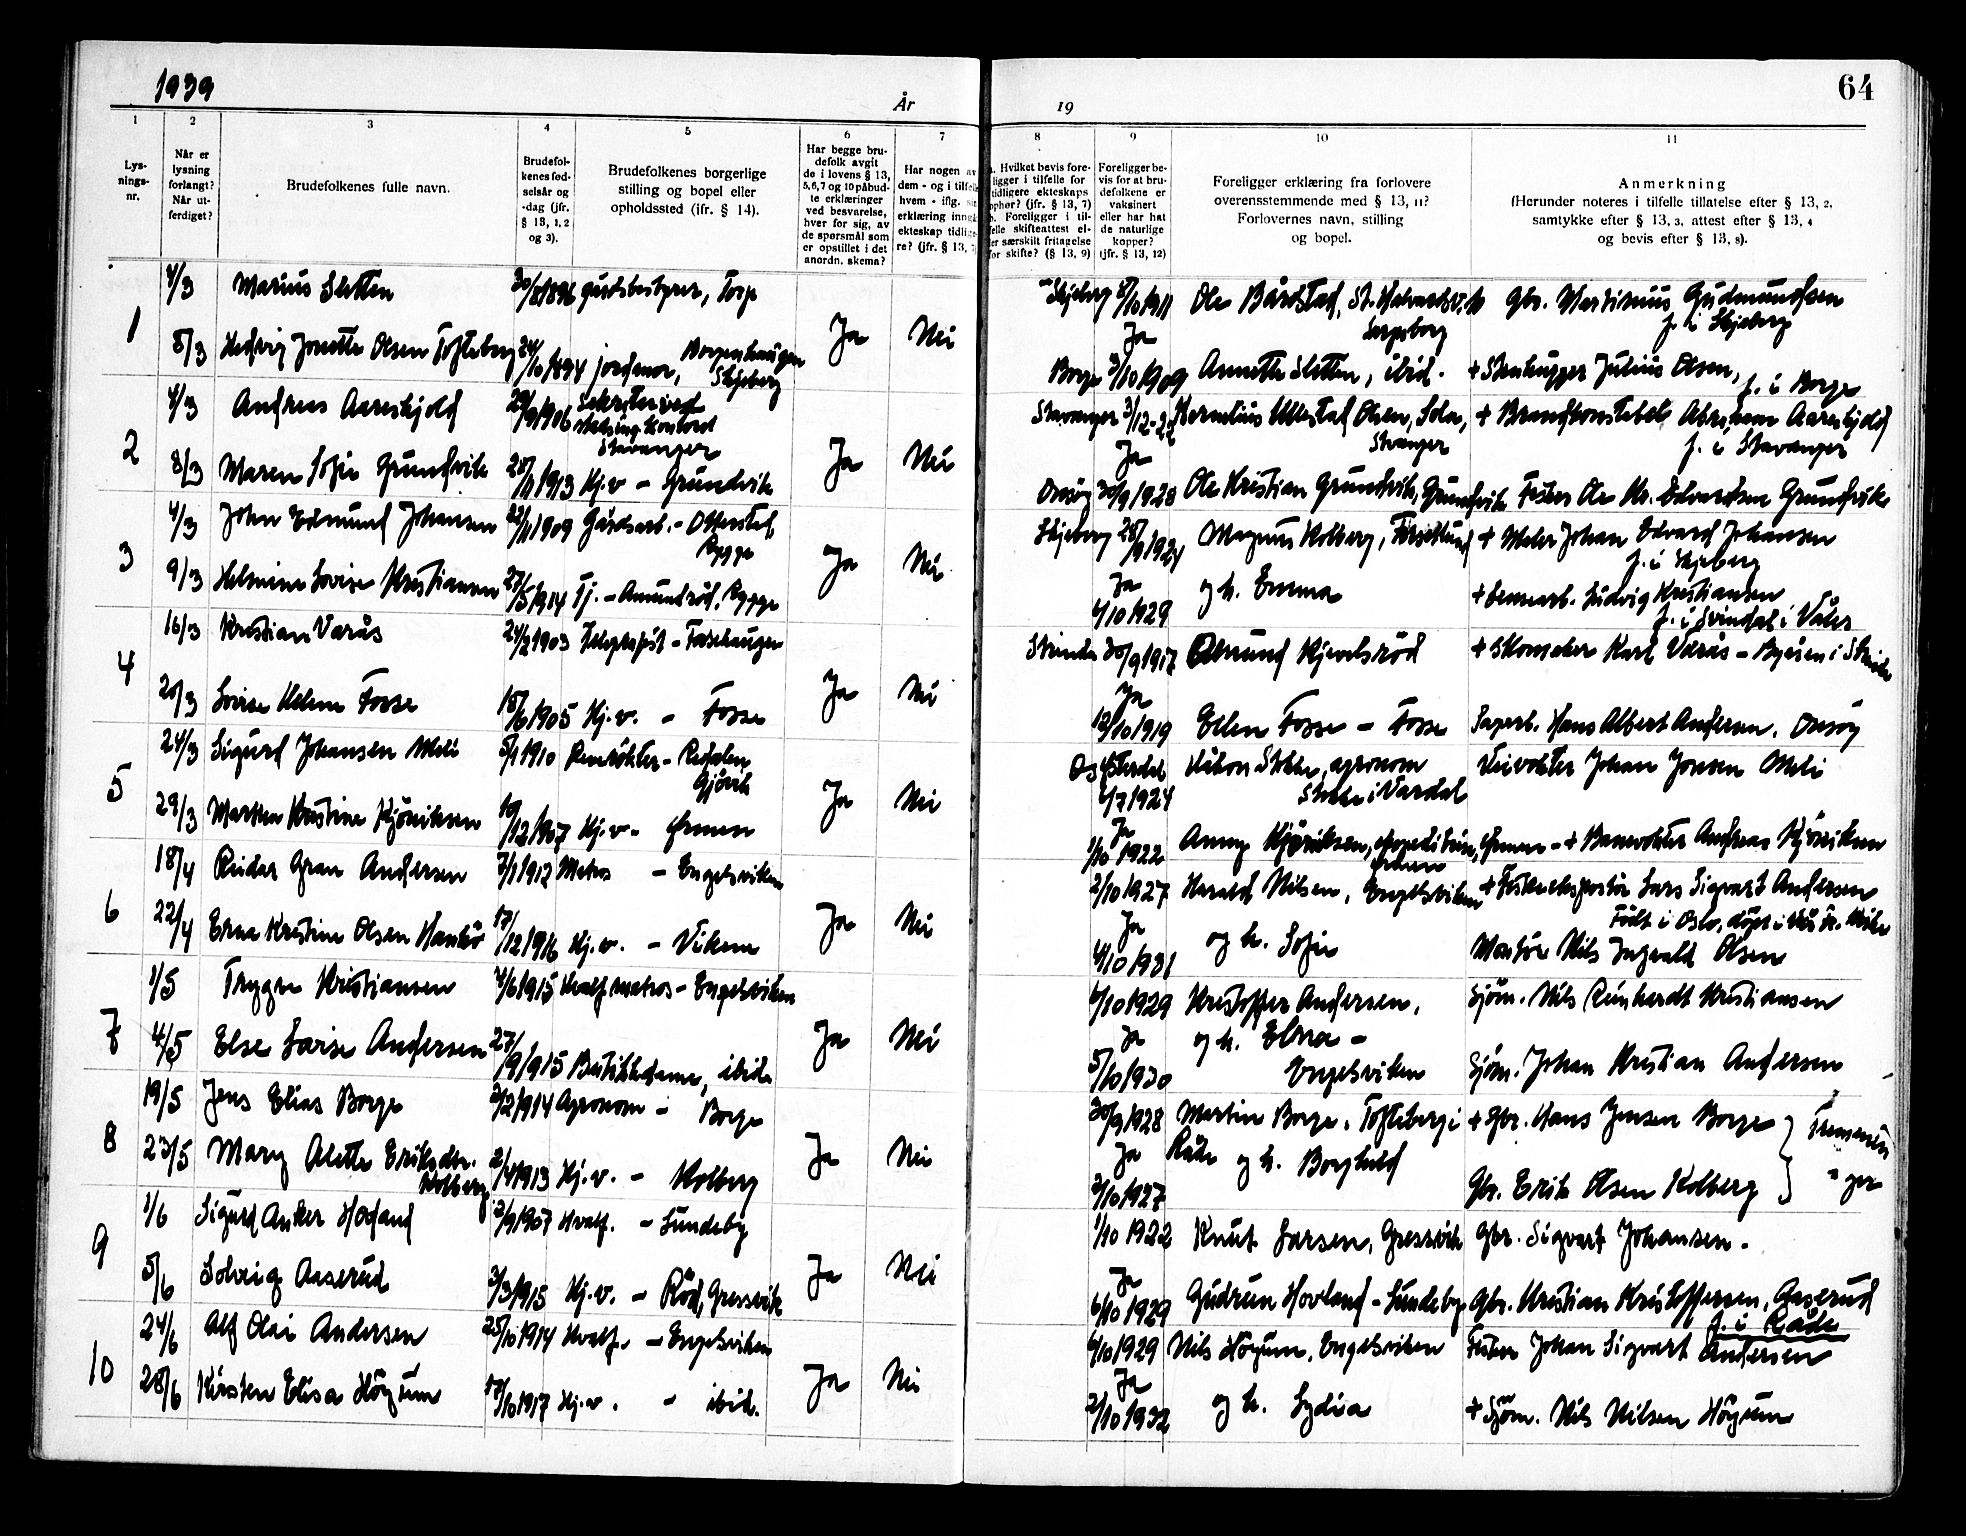 1939
År
19
64
1
2
3
4
5
6
7
8
9
10
11
Lys-
nings-
nr.
Når er
lysning
forlangt?
Når ut-
ferdiget?
Brudefolkenes fulle navn.
Brudefol-
kenes fød-
selsår og
-dag (jfr.
§ 13, 1, 2
og 3).
Brudefolkenes borgerlige
stilling og bopel eller
opholdssted (ifr. § 14).
Har begge bru-
defolk avgit
de i lovens § 13,
5, 6, 7 og 10 påbud-
te erklæringer
ved besvarelse,
hver for sig, av
de spørsmål som
er opstillet i det
anordn. skema?
Har nogen av
dem - og i tilfelle
hvem - iflg. sin
erklæring inngå
ekteskap tidlige-
re? (jfr. § 13,
a. Hvilket bevis fore-
ligger i tilfelle for
tidligere ekteskaps
ophør? (jfr. § 13, 7)
b. Foreligger i til-
felle skifteattest el-
ler særskilt fritagelse
for skifte? (§ 13, 9)
Foreligger be-
vis for at bru-
defolkene er
vaksinert
eller har hat
de naturlige
kopper?
(jfr. § 13, 12)
Foreligger erklæring fra forlovere
overensstemmende med § 13, 11?
Forlovernes navn, stilling
og bopel.
Anmerkning
(Herunder noteres i tilfelle tillatelse efter § 13, 2,
samtykke efter § 13, 3, attest efter § 13, 4
og bevis efter § 13, 8).
1
4/3 Marius Sletten 30/8 1896 gårdsbestyrer, Torp
Skjeberg 8/10 1911 Ole Bårdstad, St. Halvardsv. Gbr. Martinius Gudmundsen
Ja Sarpsborg f. i Skjeberg
8/3 Hedvig Jonette Olsen Tofteberg 24/10 1894 jordmor, Borgenhaugen Skjeberg Ja Nei
Borge 3/10 1909 Annette Sletten, ibid. + Stenhugger Julius Olsen, f. i Borge
2
4/3 Andreas Aareskjold 29/9 1906 Sekretær ved
Stavanger
Stavanger 3/12-22 Ullestad Olsen, Sola, + Brandkonstabel Aareskjold
Ja Stavanger f. i Stavanger
8/3 Maren Sofie Grundvik 28/11 1913 Hj.v - Grundvik Ja Nei
Onsøy 30/9 1928 Ole Kristian Grundvik, Grundvik Fisker Ole Kr. Edvardsen Grundvik
3
4/3 John Edmund Johansen 23/11 1909 Gårdsarb. - Otterstad, Rygge
Skjeberg 28/9 1924 Magnus Kolberg, + Maler Johan Edvard Johansen
f. i Skjeberg
9/3 Helmine Lovise Kristiansen 27/5 1914 Tj. - Amundrød, Rygge Ja Nei
Ja
4/10 1929 og h. Emma + Ludvig Kristiansen
f. i Svindal i Våler
4
16/3 Kristian Varås 24/2 1903 Telegrafist - Fossehaugen
Strinda 30/9 1917 Amund Kjevelsrød + Skomaker Karl Varås - Byåsen i Strinda
Ja
20/3 Lovise Helene Fosse 18/6 1905 Hj.v. - Fosse Ja Nei
12/10 1919 Ellen Fosse - Fosse Sagarb. Hans Albert Andersen, Onsøy
5
24/3 Sigurd Johansen Meli 5/1 1910 Revrøkter - Redalen
Gjøvik
6/7 1924 Håkon Stokke, agronom Veivokter Johan Jonsen Meli
Stokke i Vardal
29/3 Marken Kristine Kjøniksen 10/12 1907 Hj.v - Ørmen Ja Nei
Ja
1/10 1922 Anny Kjøniksen, Ørmen - + Banevokter Andreas Kjøniksen
6
18/4 Reidar Gran Andersen 7/1 1912 Matros - Engelsviken
2/10 1927 Harald Nilsen, Engelsviken + Fiskeeksportør Lars Sigvart Andersen
Ja Født i Oslo, døpt i
22/4 Erna Kristine Olsen Hankø 17/12 1916 Hj.v. - Viken Ja Nei
4/10 1931 og h. Sofie Montør Nils Ingvald Olsen
7
1/5 Trygve Kristiansen 4/6 1915 Hvalf. matros - Engelsviken
6/10 1929 Kristoffer Andersen, Sjøm. Nils Reinhardt Kristiansen
Ja og h. Elna -
4/5 Else Lovise Andersen 27/9 1915 Butikkdame, ibid. Ja Nei
5/10 1930 Engelsviken Sjøm. Johan Kristian Andersen
8
19/5 Jens Elias Borge 2/2 1914 Agronom - Borge
30/9 1928 Martin Borge, Tofteberg i + Gbr. Hans Jensen Borge
Ja Råde og h. Borghild
23/5 Mary Alette Eriksdtr. Kolberg 2/4 1913 Hj.v. - Kolberg Ja Nei
2/10 1927 Gbr. Erik Olsen Kolberg
9
1/6 Sigurd Anker Hovland 3/9 1907 Hvalf. - Lundeby
1/10 1922 Knut Larsen, Gressvik Gbr. Sigvart Johansen.
Ja
5/6 Solveig Aaserud 3/3 1915 Hj.v. - Rød, Gressvik Ja Nei
6/10 1929 Gudrun Hovland - Lundeby Gbr. Kristian Kristoffersen, Aaserud
f. i Råde
10
24/6 Alf Olai Andersen 25/10 1914 Hvalf. - Engelsviken
6/10 1929 Nils Høyum, Engelsviken Fisker Johan Sigvart Andersen
Ja
28/6 Kirsten Elisa Høyum 17/10 1917 Hj.v. - ibid. Ja Nei
2/10 1932 og h. Lydia + Sjøm. Nils Nilsen Høyum